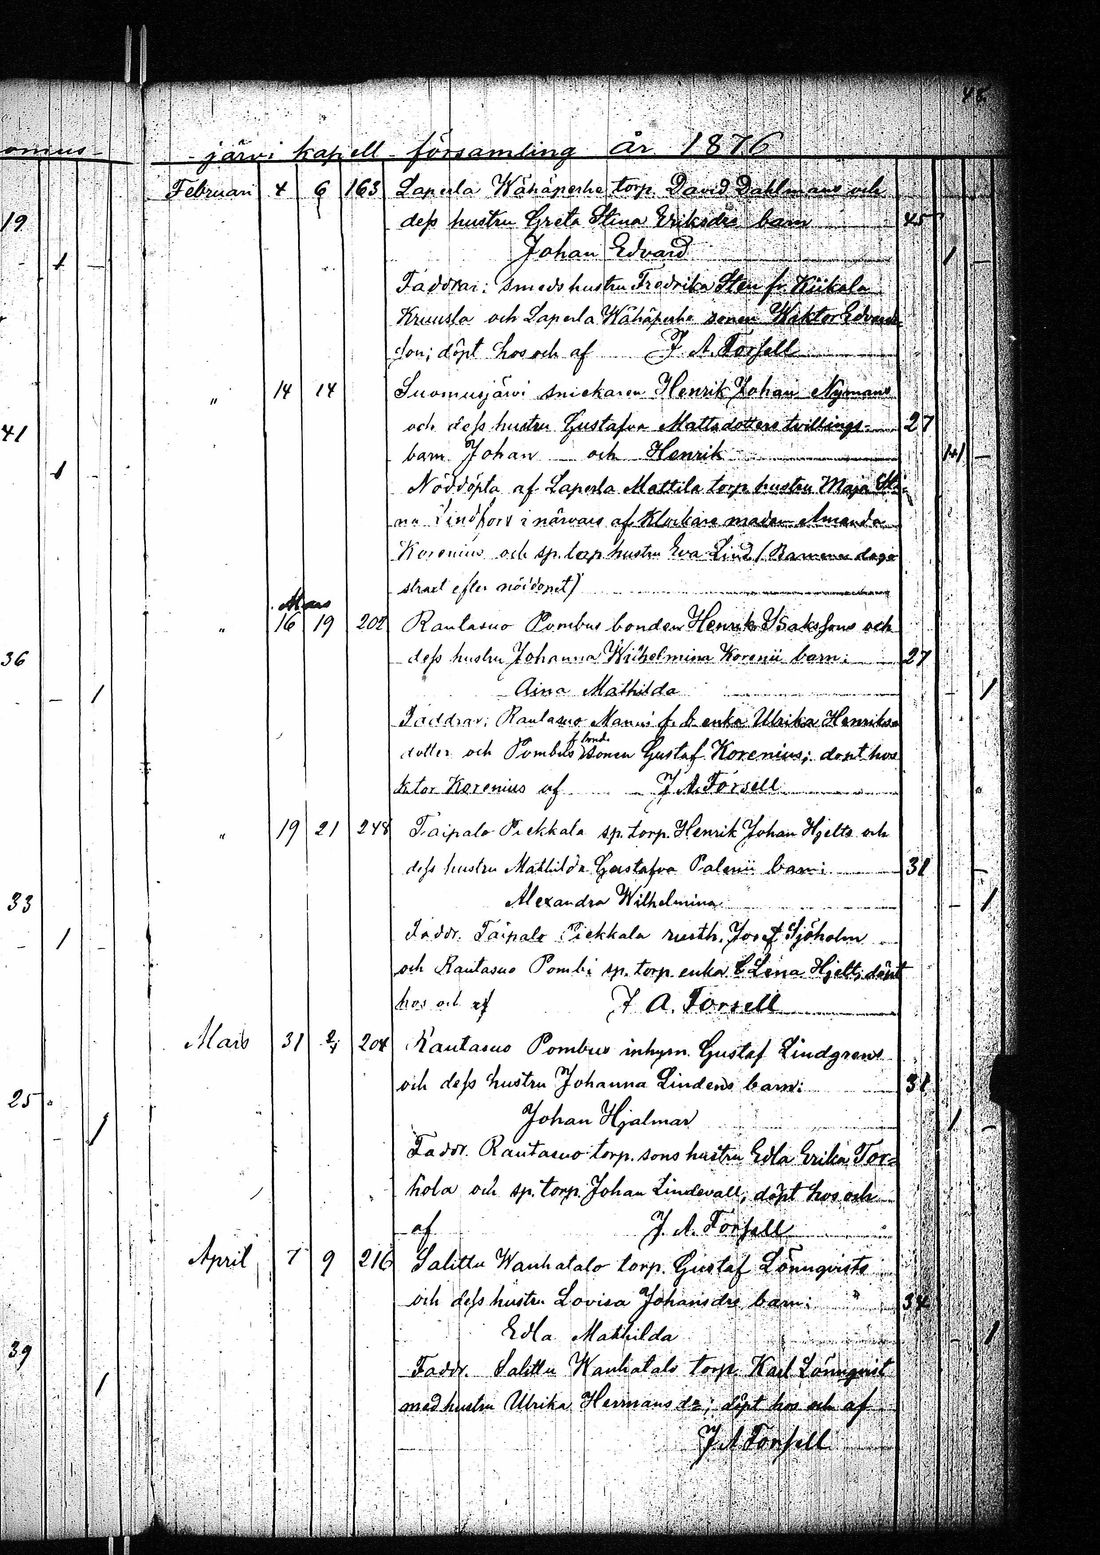 48
omus-
järvi kapell församling år 1876
Februari 4 6 163 Laperla Wähäperhe torp. David Dahlmans och
19
dess hustru Greta Stina Eriksdrs barn 45
Johan Edvard 1 -
1 -
Faddrar: smeds hustru Fredrika Sten fr. Kiikala
Kruusla och Laperla Wähäperhe sonen Wiktor Edvards-
son; döpt hos och af J. A. Forsell
" 14 14 Suomusjärvi snickaren Henrik Johan Nymans
41
och dess hustru Gustafva Mattsdotters tvillings- 27
barn Johan och Henrik 1+1 -
1 -
Nöddöpta af Laperla Mattila torp. hustru Maja Sti-
na Lindfors i närvaro af Klockare madan Amanda
Korenius och sp. torp hustru Eva Lind (Barnen dogo
straxt efter nöddopet)
Mars
" 16 19 202 Rautasuo Pombus bonden Henrik Isakssons och
36
dess hustru Johanna Wilhelmina Korenii barn: 27
Aina Mathilda - 1
- 1
Faddrar: Rautasuo Manni f. b. enka Ulrika Henriks-
dotter och Pombus f. bonde sonen Gustaf Korenius; döpt hos
ktor Korenius af J. A. Forsell
" 19 21 248 Taipalo Piekkala sp. torp. Henrik Johan Hjelts och
dess hustru Mathilda Gustafva Palenii barn: 31
33
Alexandra Wilhelmina - 1
- 1 -
Faddr. Taipalo Piekkala rusth. Josef Sjöholm
och Rautasuo Pombi sp. torp. enka Lena Hjelt; döpt
hos och af J. A. Forsell
Mars 31 2/4 204 Rautasuo Pombus inhysn. Gustaf Lindgrens
och dess hustru Johanna Lindens barn: 31
25
Johan Hjalmar 1 -
- 1
Faddr. Rautasuo torp. sons hustru Edla Erika Tor-
kola och sp. torp. Johan Lindevall; döpt hos och
af J. A. Forsell
April 7 9 216 Salittu Wanhatalo torp. Gustaf Lönnqvists
och dess hustru Lovisa Johansdrs barn: " 34
Edla Mathilda - 1
39
1
Faddr. Salittu Wanhatalo torp. Karl Lönnqvist
med hustru Ulrika Hermans dr; döpt hos och af
J. A. Forsell